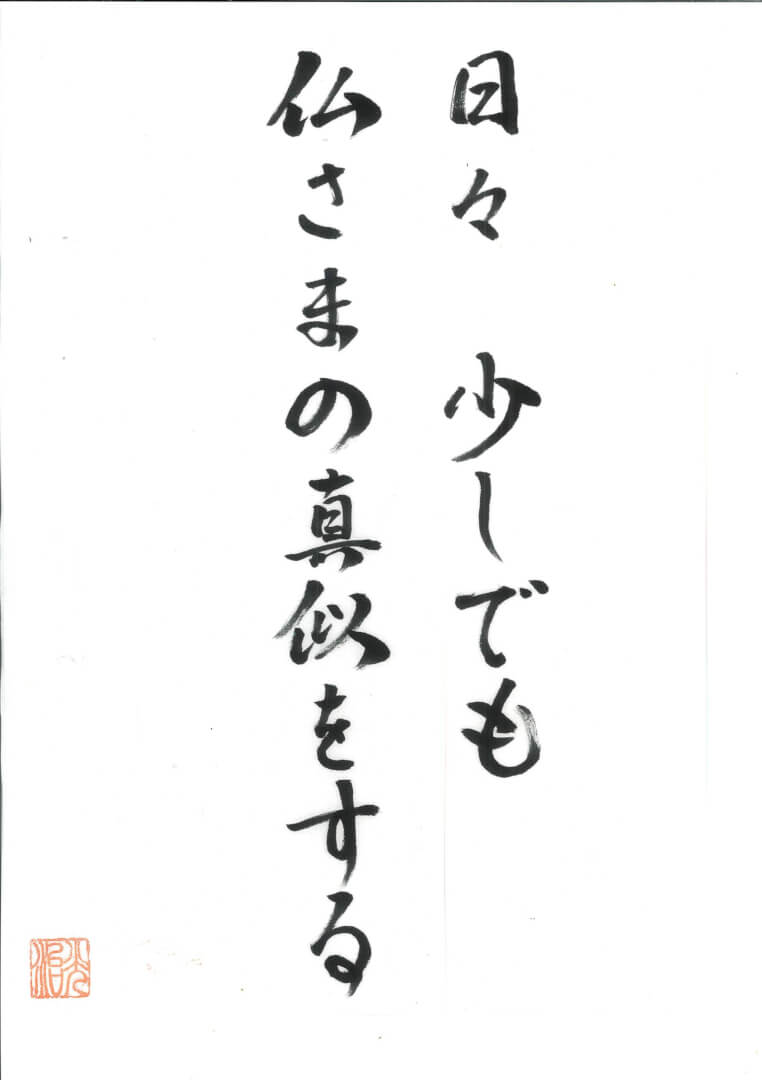 日々 少しでも
仏さまの真似をする